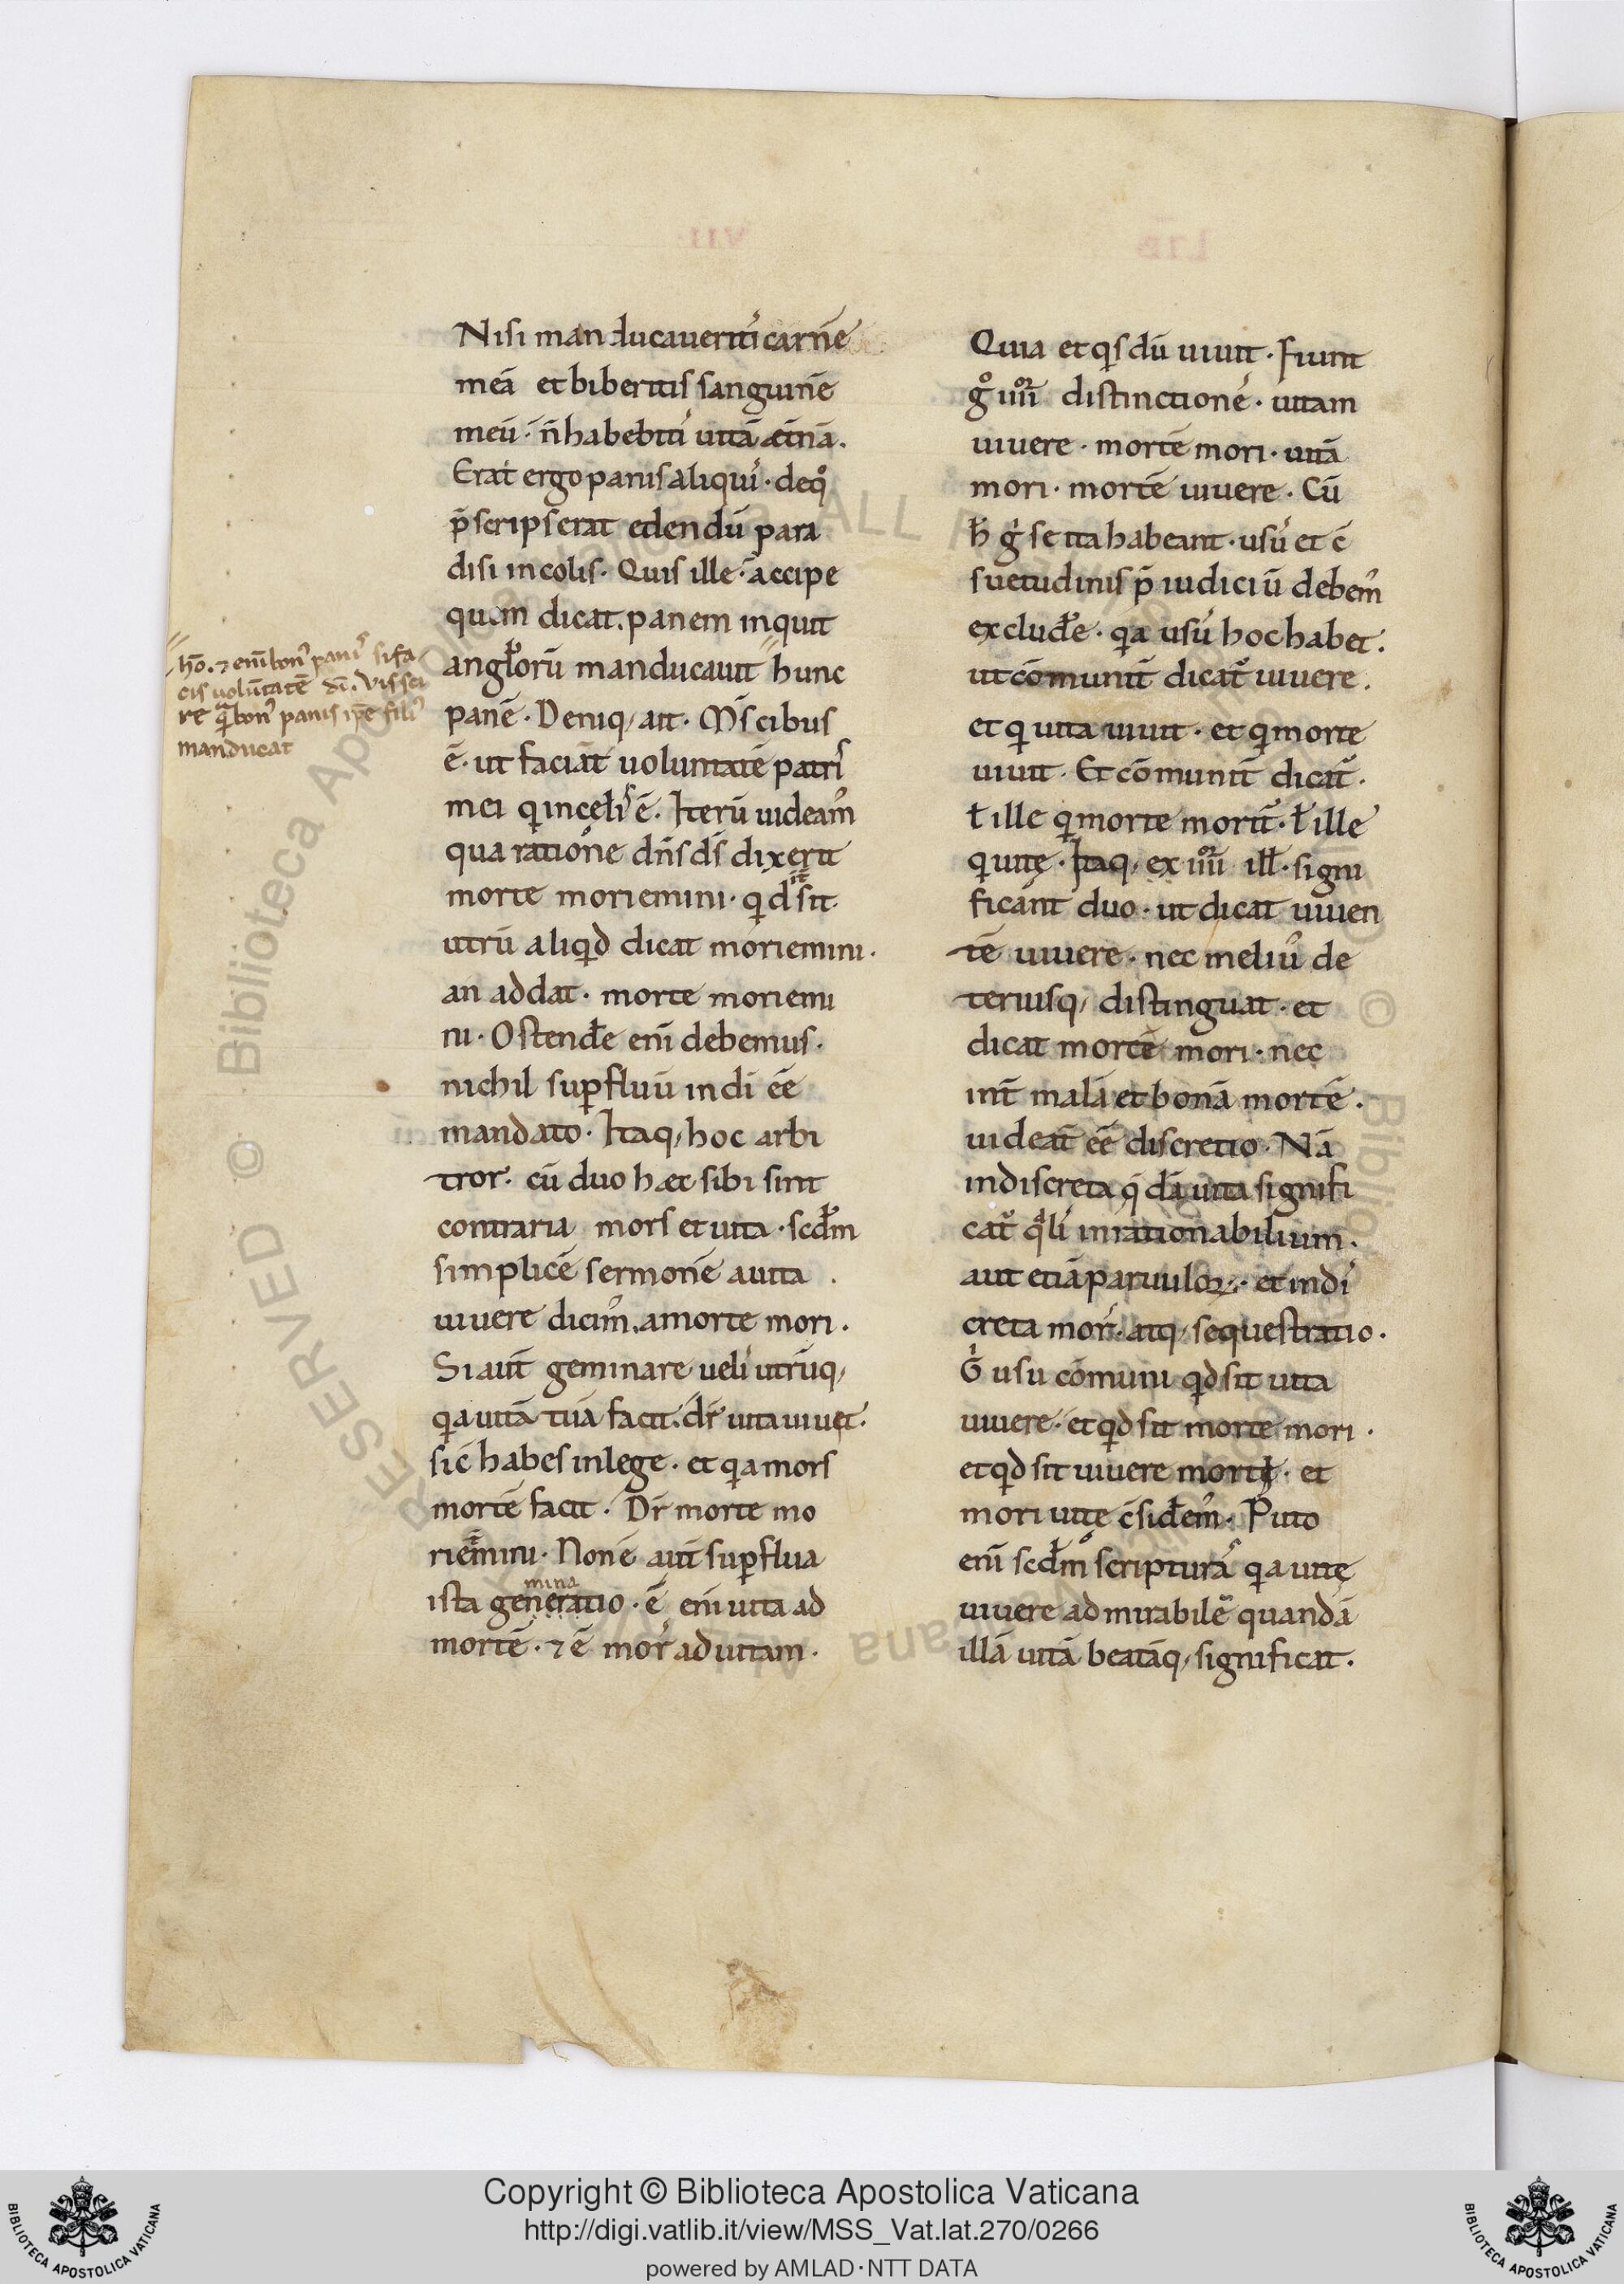 Nisi manducaueritıſ carnē
meā et biberitis sanguinē
meū· n̄ habebitıſ uitā æt̄nā.
Erat ergo panis aliquıſ· de qͦ
p̄scripserat edendū para
disi incolis· Quis ille· accipe
quem dicat. panem inquit
anglorū manducauit hunc
panē· Deniq; ait· Ms̄ cibus
ē· ut faciā uoluntatē patriſ
mei qi in celiſ ē· Iterū uideamꝰ
qua ratione dn̄s ds̄ dixerit
morte moriemini· qid sit·
utrū aliqid dicat moriemini·
an addat· morte moriemi
ni· Ostendꝉe eni̅ debemus·
nichil suꝑfluū in di̅ ee̅
mandato· Itaq; hoc arbi
tror· cū duo hæc sibi sint
contraria mors et uita· scdꝉm
simplicē sermonē a uita
uiuere dicimꝰ. a morte mori·
Si aut̅ geminare ueliſ utrūq;
qia uitā tuā facit. dr̅ uita uiuet·
sic̄ habes in lege· et qia mors
mortē facit· Dr̅ morte mo
riemini· Non ē aut̅ suꝑflua
mina
ista generatio· ē eni̅ uita ad
mortē· ⁊ ē morſ ad uitam·
hō. ⁊ eni̅ bonꝰ paniſ si fa
cis uolūtatē di̅. Vis sci
re qa̅ bonꝰ panis ip̅e filiꝰ
manducat
Quia et qiſ dū uiuit· Fiunt
gͦ iiiior distinctioneſ· uitam
uiuere· mortē mori· uitā
mori· mortē uiuere· Cū
h̄ gi se ita habeant· usuſ et c̄
suetudinis p̄iudiciū debemꝰ
excludꝉe· qia usuſ hoc habet·
ut cōmunit̅ dicat̉ uiuere.
et qi uita uiuit· et qi morte
uiuit· Et cōmunit̅ dicat̉·
ꝉ ille qi morte morit̉· ꝉ ille
qi uitę· Itaq; ex iiiior illꝉ· signi
ficant̉ duo· ut dicat uiuen
tē uiuere· nec meliuſ de
teriusq; distinguat· et
dicat mortē mori· nec
int̅ malā et bonā mortē·
uideat̉ ee̅ discretio· Nā
indiscreta qa dā uita signifi
cat̉ qaliſ inrationabilium·
aut etiā paruuloꝝ· et indiſ
creta morſ· atq; sequestratio·
Gi usu cōmuni qid sit uita
uiuere· et qid sit morte mori·
et qid sit uiuere morti· et
mori uitę c̄sidꝉemꝰ· Puto
eni̅ scdꝉm scripturaſ qia uitę
uiuere admirabilē quandā
illā uitā beatāq; significat·
Copyright © Biblioteca Apostolica Vaticana
http://digi.vatlib.it/view/MSS_Vat.lat.270/0266
powered by AMLAD·NTT DATA
BIBLIOTECA APOSTOLICA VATICANA
BIBLIOTECA APOSTOLICA VATICANA